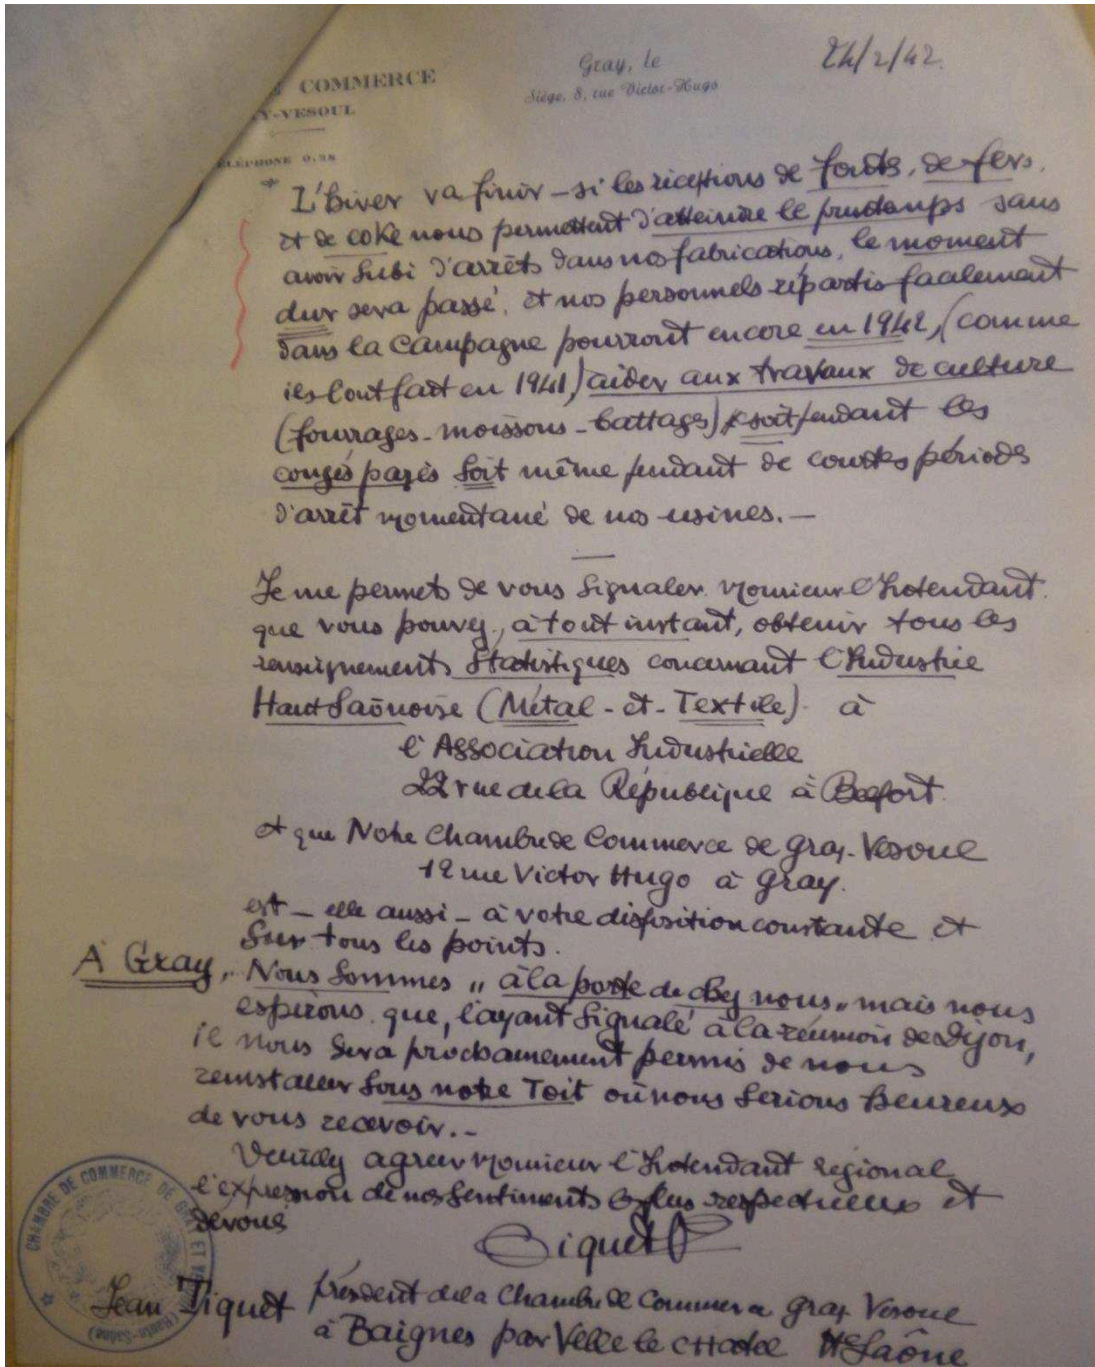 COMMERCE
Y-VESOUL
ÉLÉPHONE 0.28
Gray, le
24/2/42.
Siège, 8, rue Victor-Hugo
L'hiver va finir – si les réceptions de fontes, de fers,
et de coke nous permettent d'atteindre le printemps sans
avoir subi d'arrêts dans nos fabrications, le moment
dur sera passé, et nos personnels répartis facilement
dans la campagne pourront encore en 1942, (comme
ils l'ont fait en 1941) aider aux travaux de culture
(fourrages - moissons - battages) soit pendant les
congés payés soit même pendant de courtes périodes
d'arrêt momentané de nos usines. –
Je me permets de vous signaler Monsieur l'Intendant
que vous pouvez, à tout instant, obtenir tous les
renseignements statistiques concernant l'Industrie
Haut Saônoise (Métal - et - Textile) à
l'Association Industrielle
22 rue de la République à Belfort
et que Notre Chambre de Commerce de Gray-Vesoul
12 rue Victor Hugo à Gray.
est – elle aussi – à votre disposition constante et
sur tous les points.
À Gray, Nous sommes "à la porte de chez nous" mais nous
espérons que, l'ayant signalé à la réunion de Dijon,
il nous sera prochainement permis de nous
reinstaller sous notre Toit où nous serions heureux
de vous recevoir. –
Veuillez agréer Monsieur l'Intendant régional
l'expression de nos sentiments les plus respectueux et
dévoués
CHAMBRE DE COMMERCE DE GRAY ET
(Haute-Saône)
Jean Tiquet président de la Chambre de Commerce Gray Vesoul
à Baignes par Velle le Chatel Hte Saône